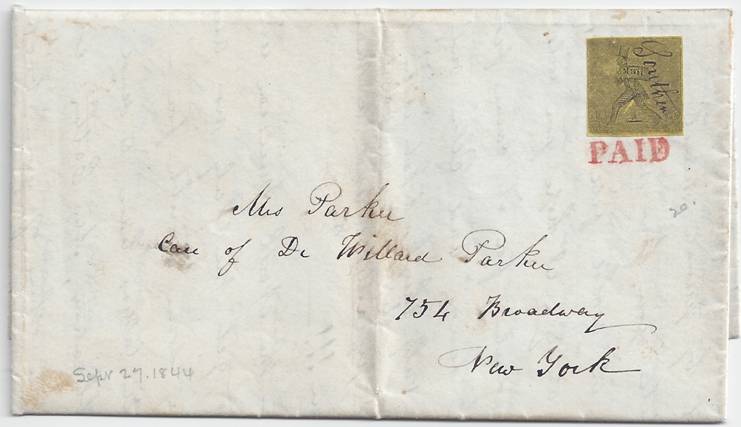 Southern
PAID
20.
Mrs Parker
Care of Dr Willard Parker
754 Broadway
New York
Sepr 27. 1844